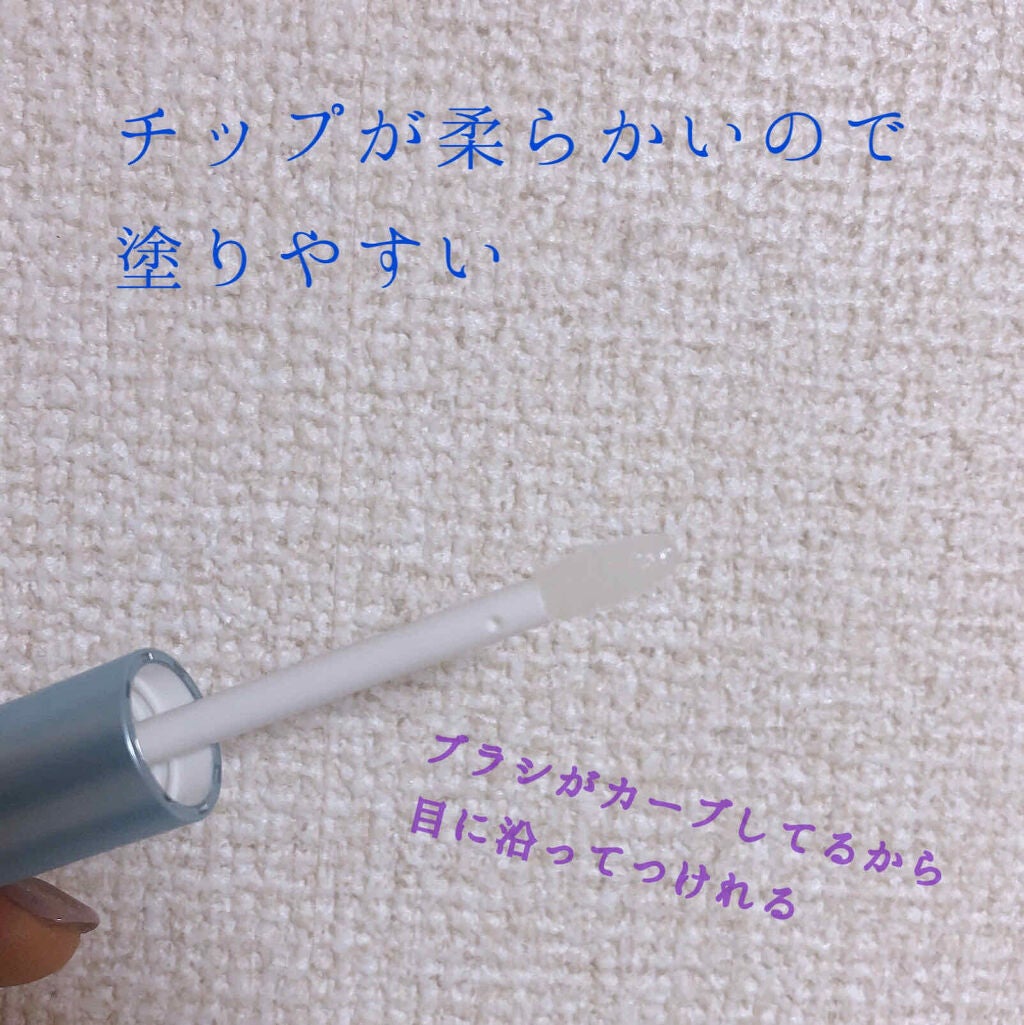 チップが柔らかいので
塗りやすい
ブラシがカーブしてるから
目に沿ってつけれる